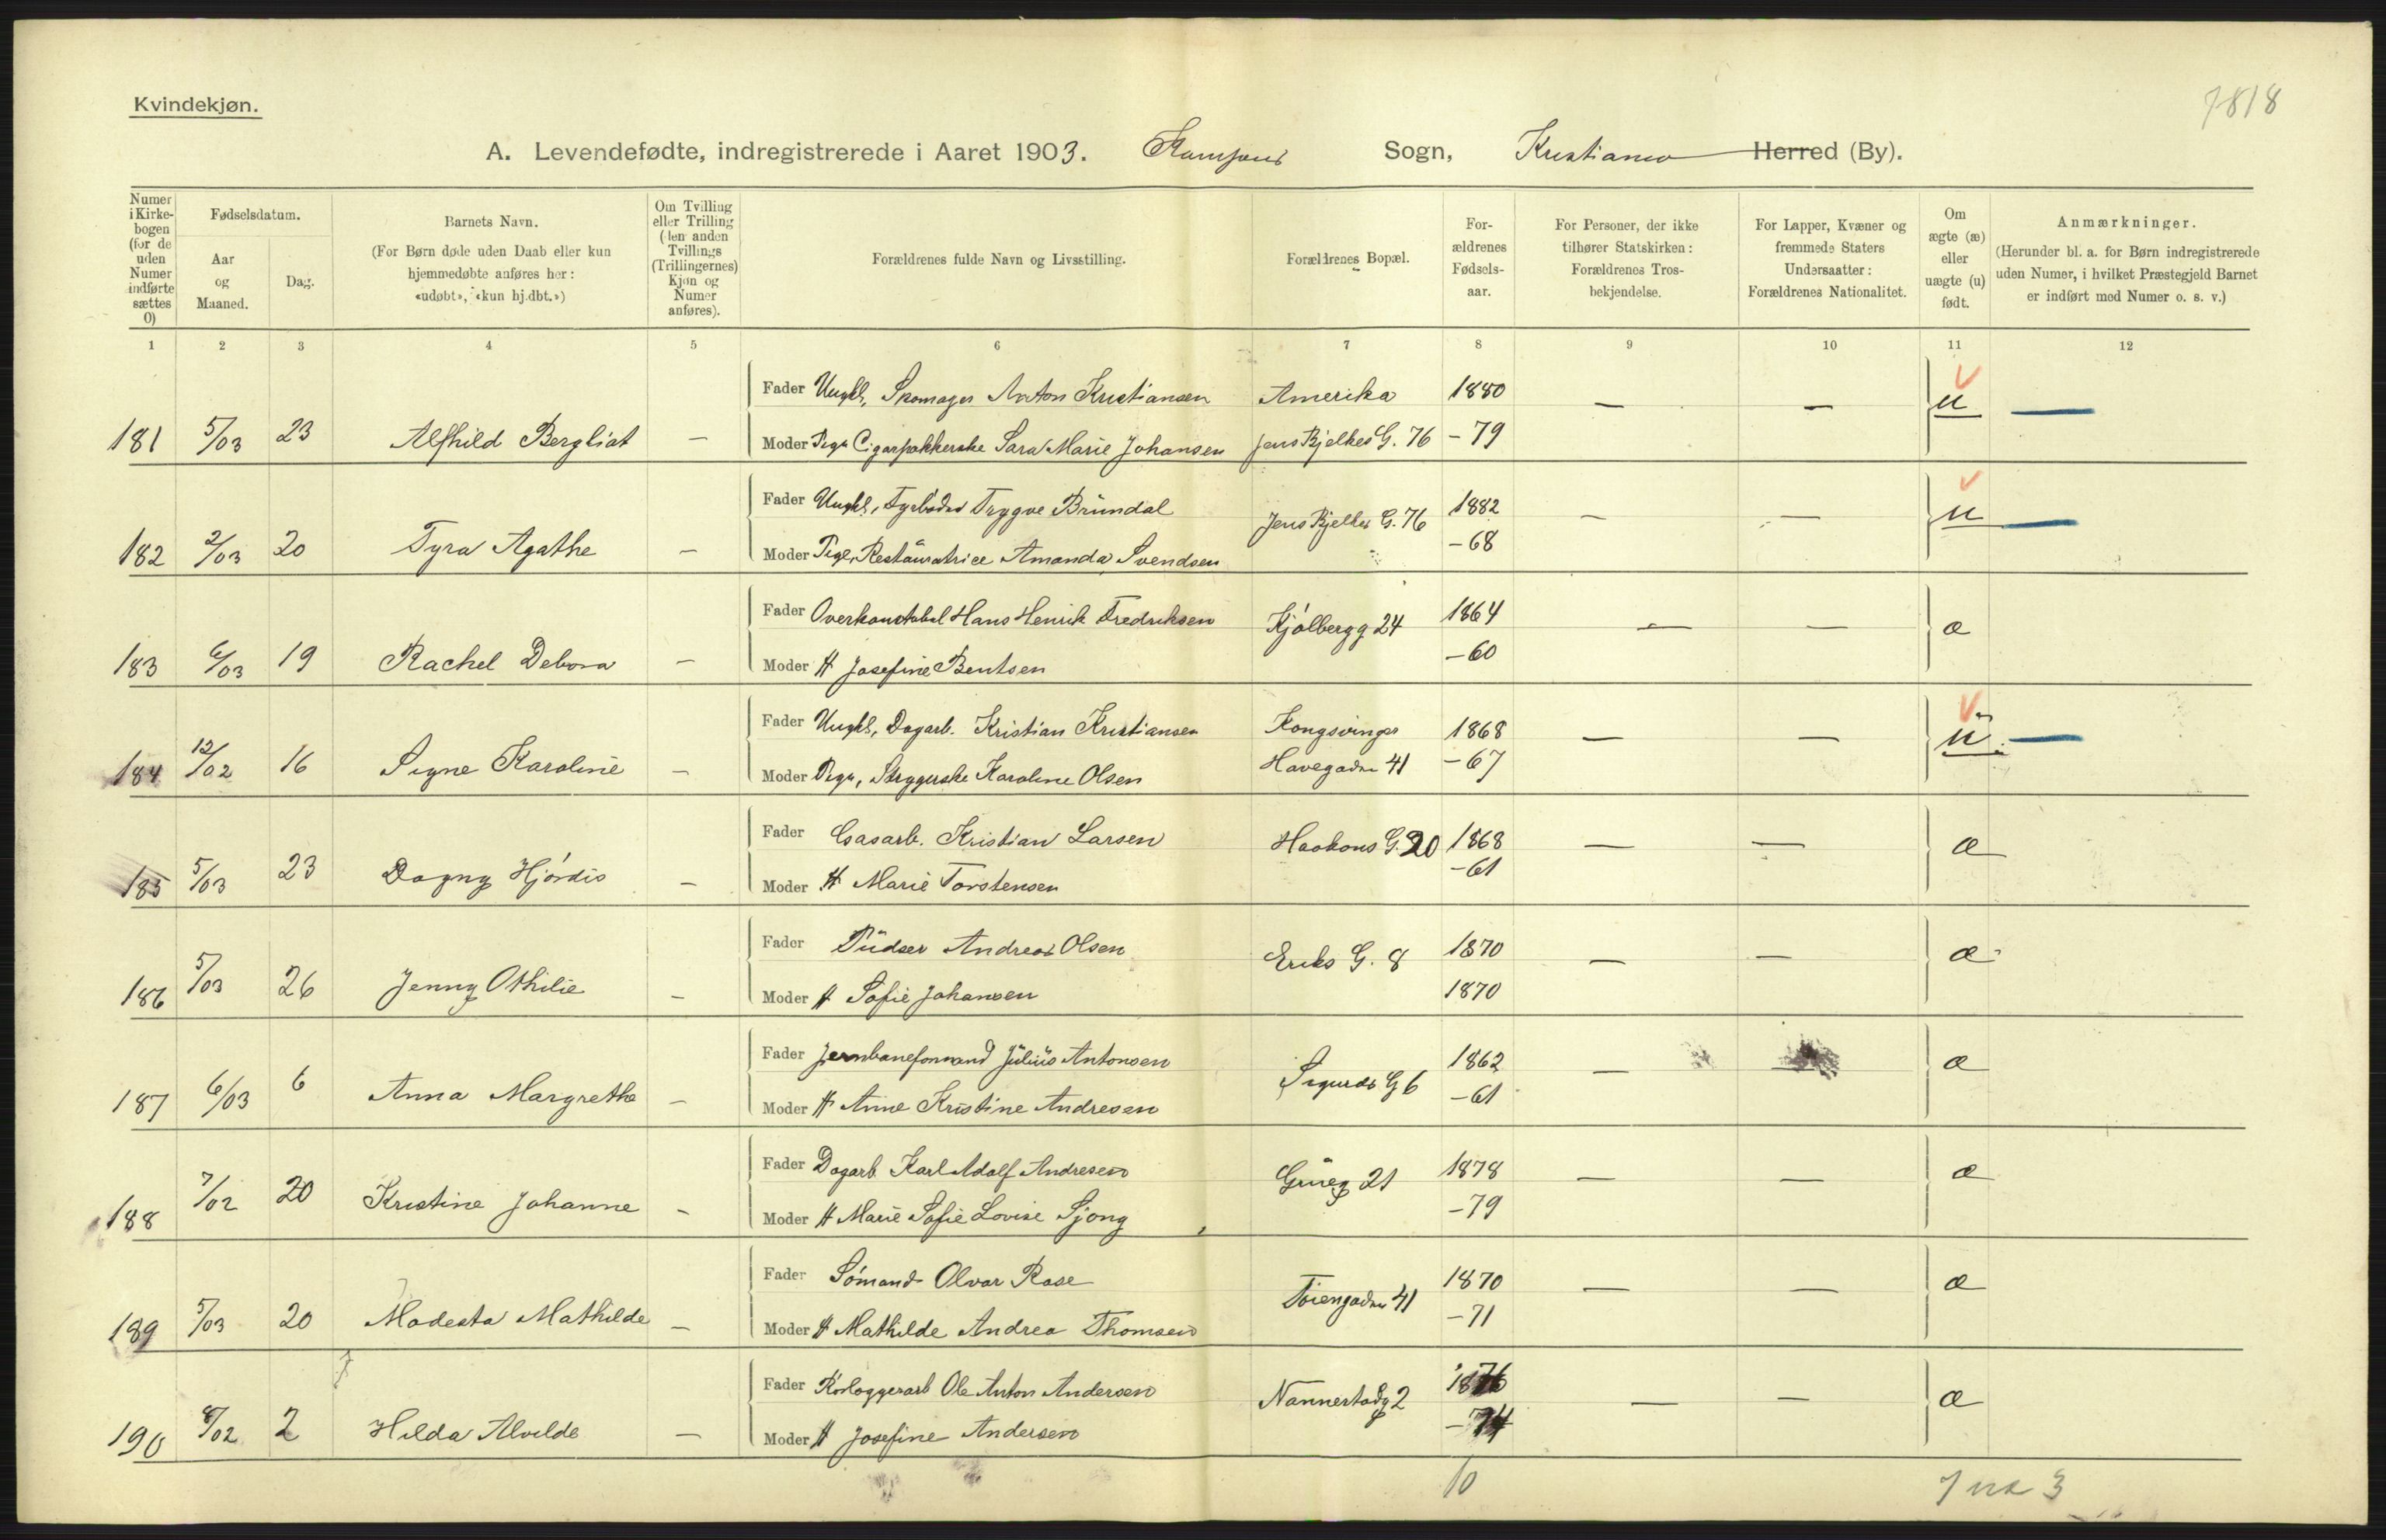 7818
Kvindekjøn.
A. Levendefødte, indregistrerede i Aaret 1903. Kampens Sogn, Kristiania Herred (By).
Numer i Kirkebogen (for de uden Numer indførte sættes 0)
Fødselsdatum.
Aar og Maaned.
Dag.
Barnets Navn.
(For Børn døde uden Daab eller kun hjemmedøbte anføres her: «udøbt», «kun hj.dbt.»)
Om Tvilling eller Trilling (den anden Tvillings (Trillingernes) Kjøn og Numer anføres).
Forældrenes fulde Navn og Livsstilling.
Forældrenes Bopæl.
Forældrenes Fødselsaar.
For Personer, der ikke tilhører Statskirken: Forældrenes Trosbekjendelse.
For Lapper, Kvæner og fremmede Staters Undersaatter: Forældrenes Nationalitet.
Om ægte (æ) eller uægte (u) født.
Anmærkninger.
(Herunder bl. a. for Børn indregistrerede uden Numer, i hvilket Præstegjeld Barnet er indført med Numer o. s. v.)
1 2 3 4 5 6 7 8 9 10 11 12
Fader Ungk., Skomager Anton Kristiansen Amerika 1880 — — u
181 5/03 23 Alfhild Bergliot — Moder Pige Cigarpakkerske Sara Marie Johansen Jens Bjelkes G. 76 - 79
Fader Ungk., Fyrbøder Trygve Brundal Jens Bjelkes G. 76 1882 — — u
182 2/03 20 Tyra Agathe — Moder Pige, Restauratrice Amanda Svendsen - 68
Fader Overkonstabel Hans Henrik Fredriksen Kjølbergg 24 1864 — — æ
183 6/03 19 Rachel Debora — Moder H Josefine Bentsen - 60
Fader Ungk., Dagarb. Kristian Kristiansen Kongsvinger 1868 — — u
184 12/02 16 Signe Karoline — Moder Pige, Strygerske Karoline Olsen Havegaden 41 - 67
Fader Gasarb. Kristian Larsen Haakons G. 20 1868 — — æ
185 5/03 23 Dagny Hjørdis — Moder H Marie Torstensen - 61
Fader Pudser Andreas Olsen Eriks G. 8 1870 — — æ
186 5/03 26 Jenny Othilie — Moder H Sofie Johansen 1870
Fader Jernbaneformand Julius Antonsen Sigurds G 6 1862 — — æ
187 6/03 6 Anna Margrethe — Moder H Anne Kristine Andresen - 61
Fader Dagarb Karl Adolf Andresen Grueg 21 1878 — — æ
188 7/02 20 Kristine Johanne — Moder H Marie Sofie Lovise Sjong - 79
Fader Sømand Olvar Rase Tøiengaden 41 1870 — — æ
189 5/03 20 Modesta Mathilde — Moder H Mathilde Andrea Thomsen - 71
Fader Ole Anton Andersen Nannestadg 2 1876 — — æ
190 8/02 2 Hilda Alvilde — Moder H Josefine Andersen - 74
10 3